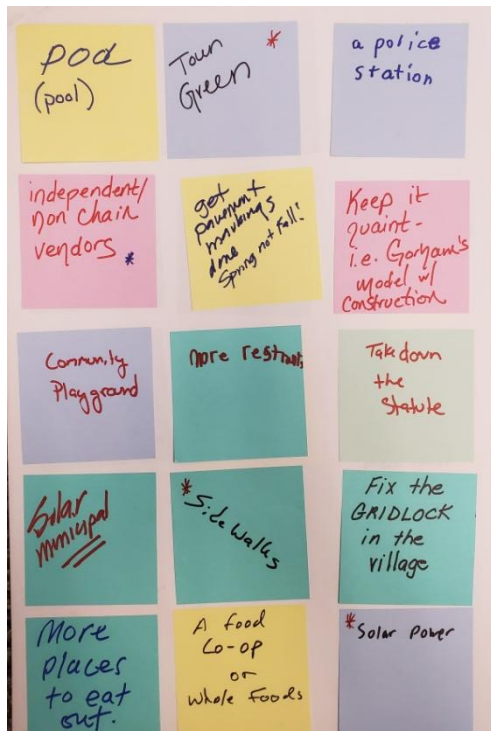 pod
(pool)
Town
Green *
a police
station
independent/
non chain
vendors *
get
pavement
markings
done
Spring not Fall!
Keep it
quaint-
i.e. Gorham's
model w/
construction
Community
Playground
more
Take down
the
Statute
Solar
municipal
* Side Walks
Fix the
GRIDLOCK
in the
village
More
places
to eat
out.
A food
Co-op
or
Whole Foods
* Solar Power